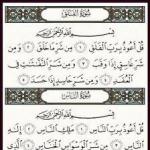 سُورَةُ الفَلَقِ
بِسْمِ اللَّهِ الرَّحْمَٰنِ الرَّحِيمِ
قُلْ أَعُوذُ بِرَبِّ الْفَلَقِ ١ مِن شَرِّ مَا خَلَقَ ٢ وَمِن
شَرِّ غَاسِقٍ إِذَا وَقَبَ ٣ وَمِن شَرِّ النَّفَّاثَاتِ فِي
الْعُقَدِ ٤ وَمِن شَرِّ حَاسِدٍ إِذَا حَسَدَ ٥
سُورَةُ النَّاسِ
بِسْمِ اللَّهِ الرَّحْمَٰنِ الرَّحِيمِ
قُلْ أَعُوذُ بِرَبِّ النَّاسِ ١ مَلِكِ النَّاسِ ٢
إِلَٰهِ النَّاسِ ٣ مِن شَرِّ الْوَسْوَاسِ الْخَنَّاسِ ٤ الَّذِي